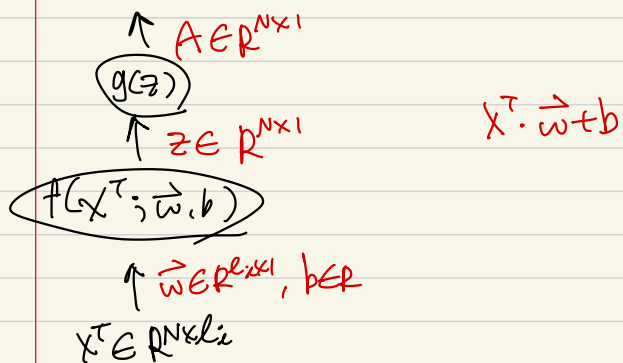 A ∈ R^{N×1}
g(z)
z ∈ R^{N×1}
X^T · \vec{w} + b
f(X^T; \vec{w}, b)
\vec{w} ∈ R^{l_i×1}, b ∈ R
X^T ∈ R^{N×l_i}